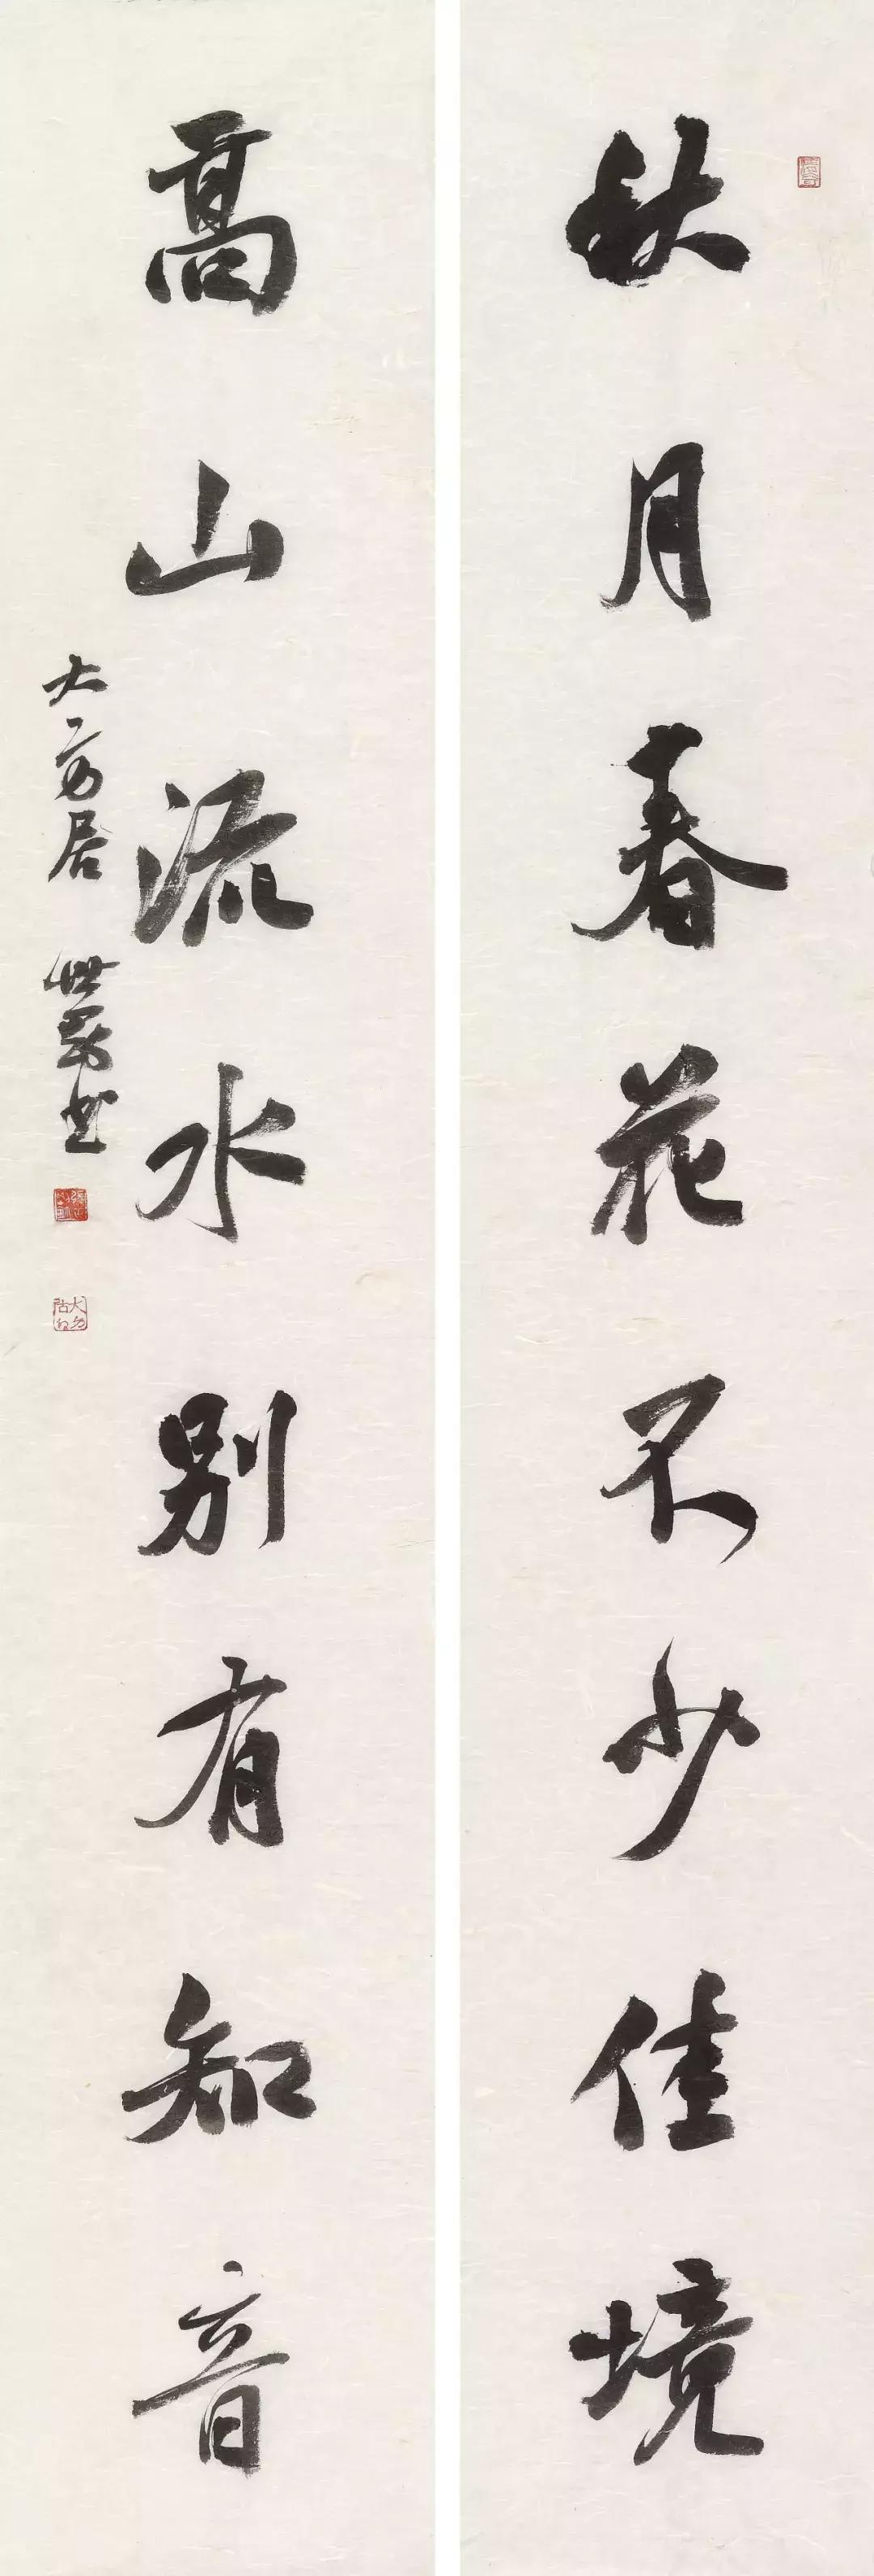 秋月春花不少佳境
高山流水别有知音
大方居 世勇书